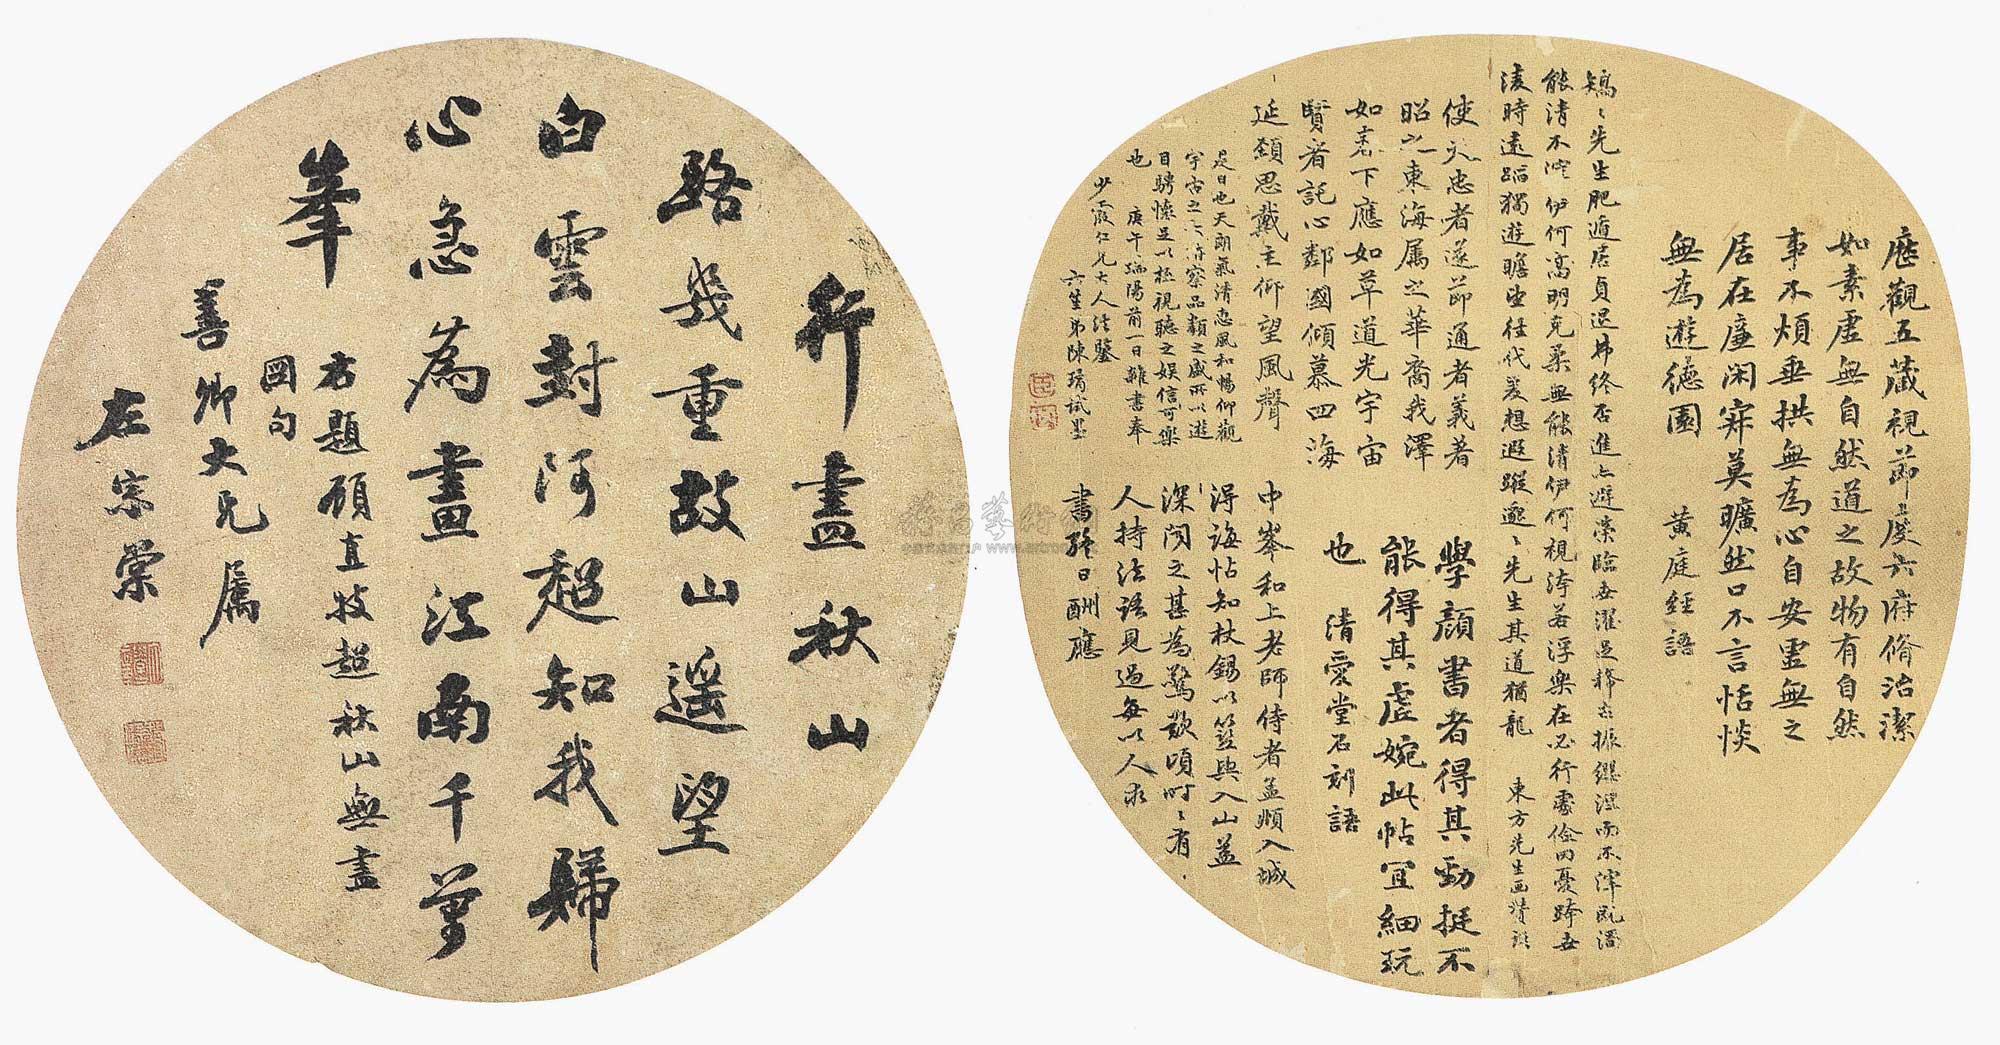 行盡秋山
路幾重故山遥望
白雲封阿超知我歸
心急為畫江南千萬
峯
右題顧直技超秋山無盡
圖句
善卿大兄属
左宗棠
歷觀五藏視節度六府脩治潔
如素虛無自然道之故物有自然
事不煩垂拱無為心自安虛無之
居在廉閑寂莫曠然口不言恬惔
無為遊德園 黃庭經語
矯〻先生肥遁居貞退弗終否進亦避榮臨世濯足稀古振纓涅而不滓既濁
能清無滓伊何高明克柔無能清伊何視洿若浮樂在必行處儉罔憂跨世
淩時遠蹈獨遊瞻望往代爰想遐蹤邈〻先生其道猶龍 東方先生画讚
使夫忠者遂節通者義著
昭之東海属之華裔我澤
如春下應如草道光宇宙
賢者託心鄰國傾慕四海
延頸思戴主仰望風聲
是日也天朗氣清惠風和暢仰觀
宇宙之大俯察品類之盛所以遊
目騁懷足以極視聽之娛信可樂
也 庚午端陽前一日雜書奉
少霞仁兄大人法鑒
六生弟陳 試墨
學顏書者得其勁挺不
能得其虛婉此帖宜細玩
也 清愛堂石刻語
中峯和上老師侍者孟順入城
得誨帖知杖錫以笠與入山益
深聞之甚為驚歎頃時〻有
人持法語見過每以人求
書殊日酬應